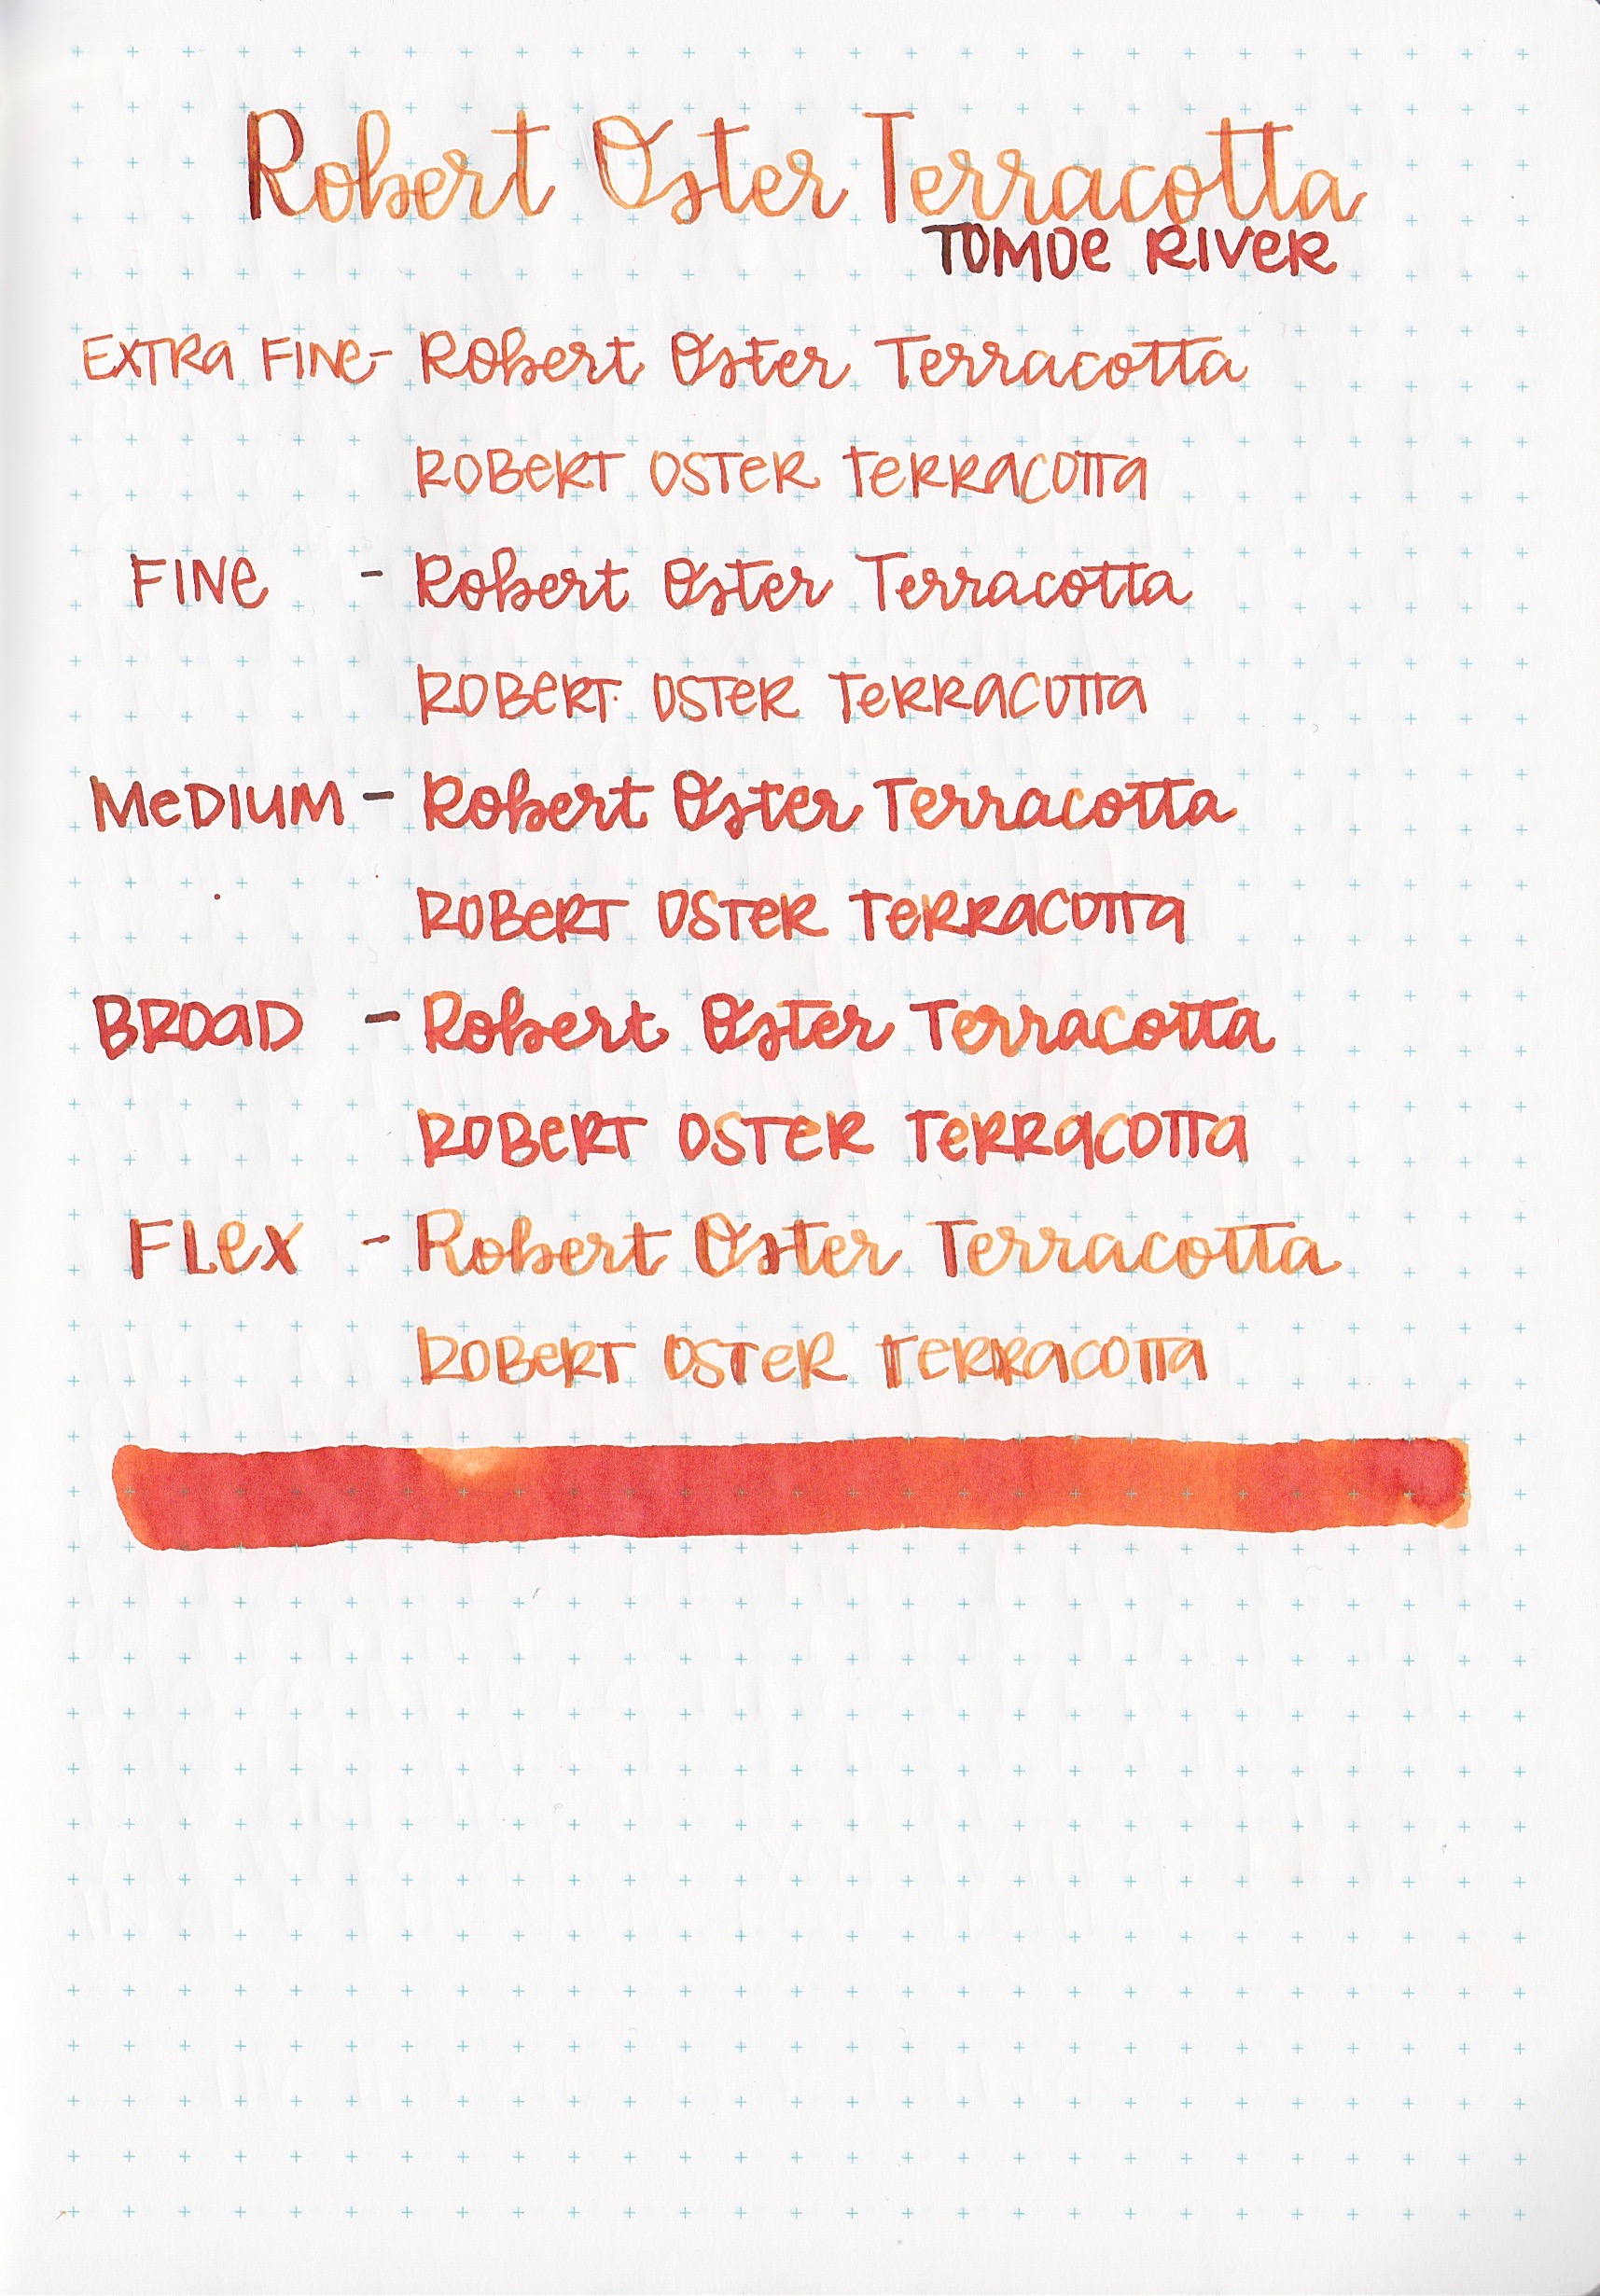 Robert Oster Terracotta
TOMOe RIVeR
EXTRa FINe- Robert Oster Terracotta
ROBeRT OSTeR TeRRaCOTTa
FINe - Robert Oster Terracotta
ROBeRT OSTeR TeRRaCOTTa
MeDIUM - Robert Oster Terracotta
ROBeRT OSTeR TeRRaCOTTa
BROaD - Robert Oster Terracotta
ROBeRT OSTeR TeRRaCOTTa
FLeX - Robert Oster Terracotta
ROBeRT OSTeR TeRRaCOTTa